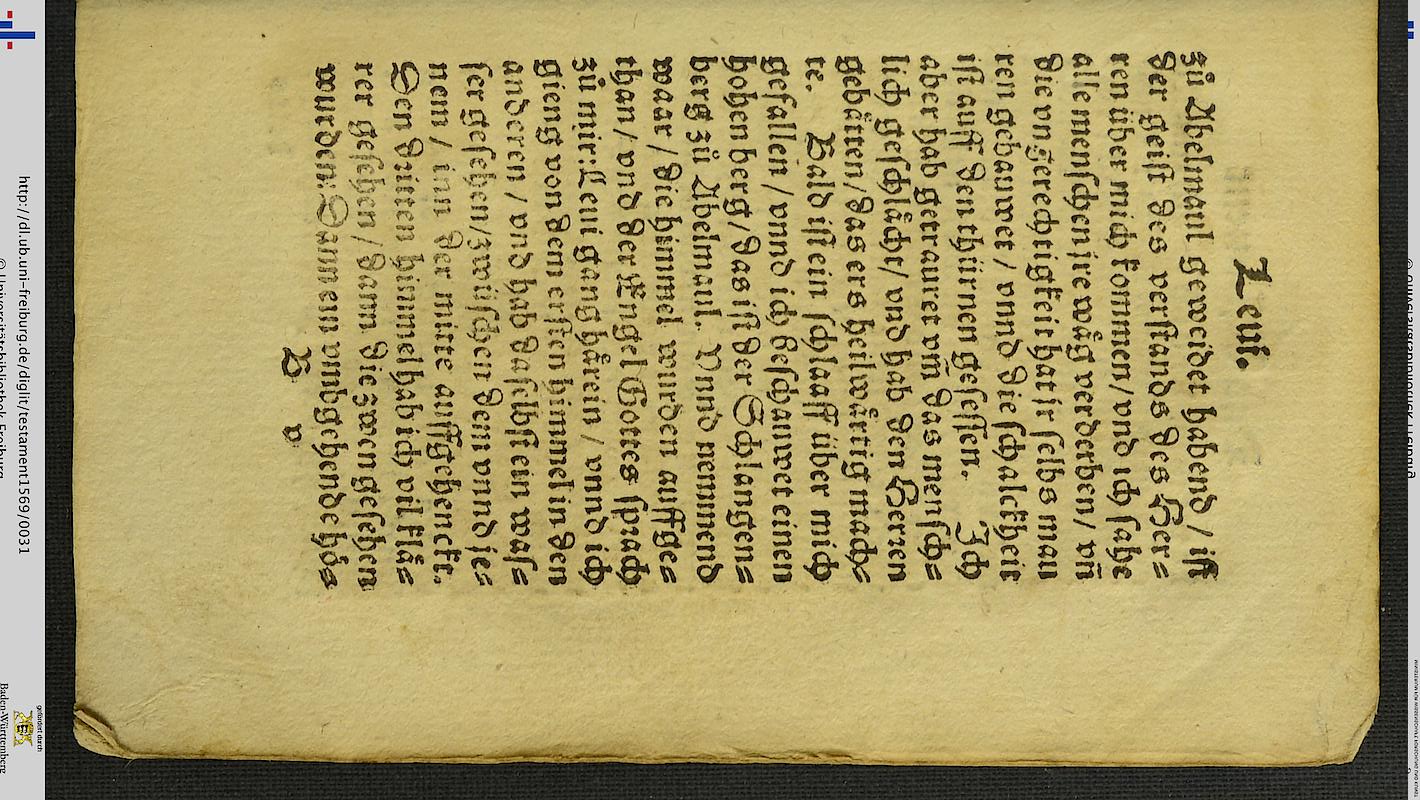 Leui.
zů Abelmaul geweidet habend / ist
der geist des verstands des Her=
ren über mich kommen / vnd ich sahe
alle menschen jre wåg verderben / vñ
die vngerechtigkeit hat jr selbs mau
ren gebauwet / vnnd die schalckheit
ist auff den thürnen gesessen. Ich
aber hab getrauret vm̃ das mensch=
lich geschlåcht / vnd hab den Herren
gebåtten / das ers heilwårtig mach=
te. Bald ist ein schlaaff über mich
gefallen / vnnd ich beschauwet einen
hohen berg / das ist der Schlangen=
berg zů Abelmaul. Vnnd nemmend
waar / die himmel wurden auffge=
than / vnd der Engel Gottes sprach
zů mir: Leui gang hårein / vnnd ich
gieng von dem ersten himmel in den
anderen / vnd hab daselbst ein was=
ser gesehen / zwüschen dem vnnd je=
nem / inn der mitte auffgehenckt.
Den dritten himmel hab ich vil klå=
rer gesehen / dann die zwen gesehen
wurden: Dann ein vmbgehende hö=
B v
http://dl.ub.uni-freiburg.de/diglit/testament1569/0031
© Universitätsbibliothek Freiburg
gefördert durch
Baden-Württemberg